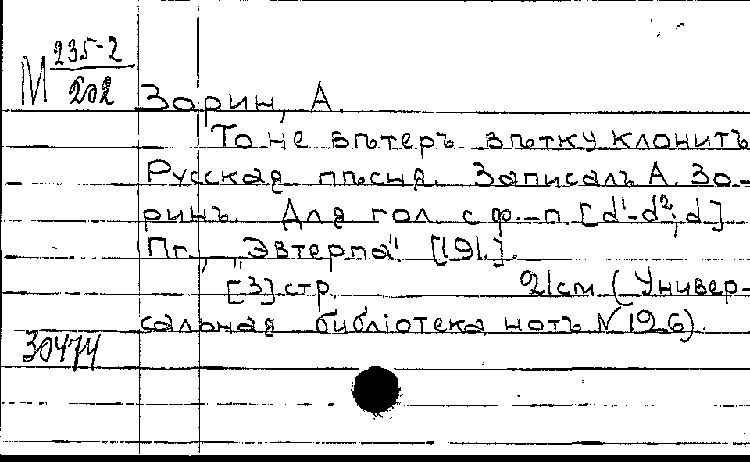 М 235-2
202
Зорин, А.
То не вѣтеръ вѣтку клонитъ
Русская пѣсня. Записалъ А. Зо-
ринъ. Для гол. с ф.-п. [d¹-d²; d]
Пг., "Эвтерпа" [191.].
[3] стр. 21 см. (Универ-
сальная библіотека нотъ N 126).
30474